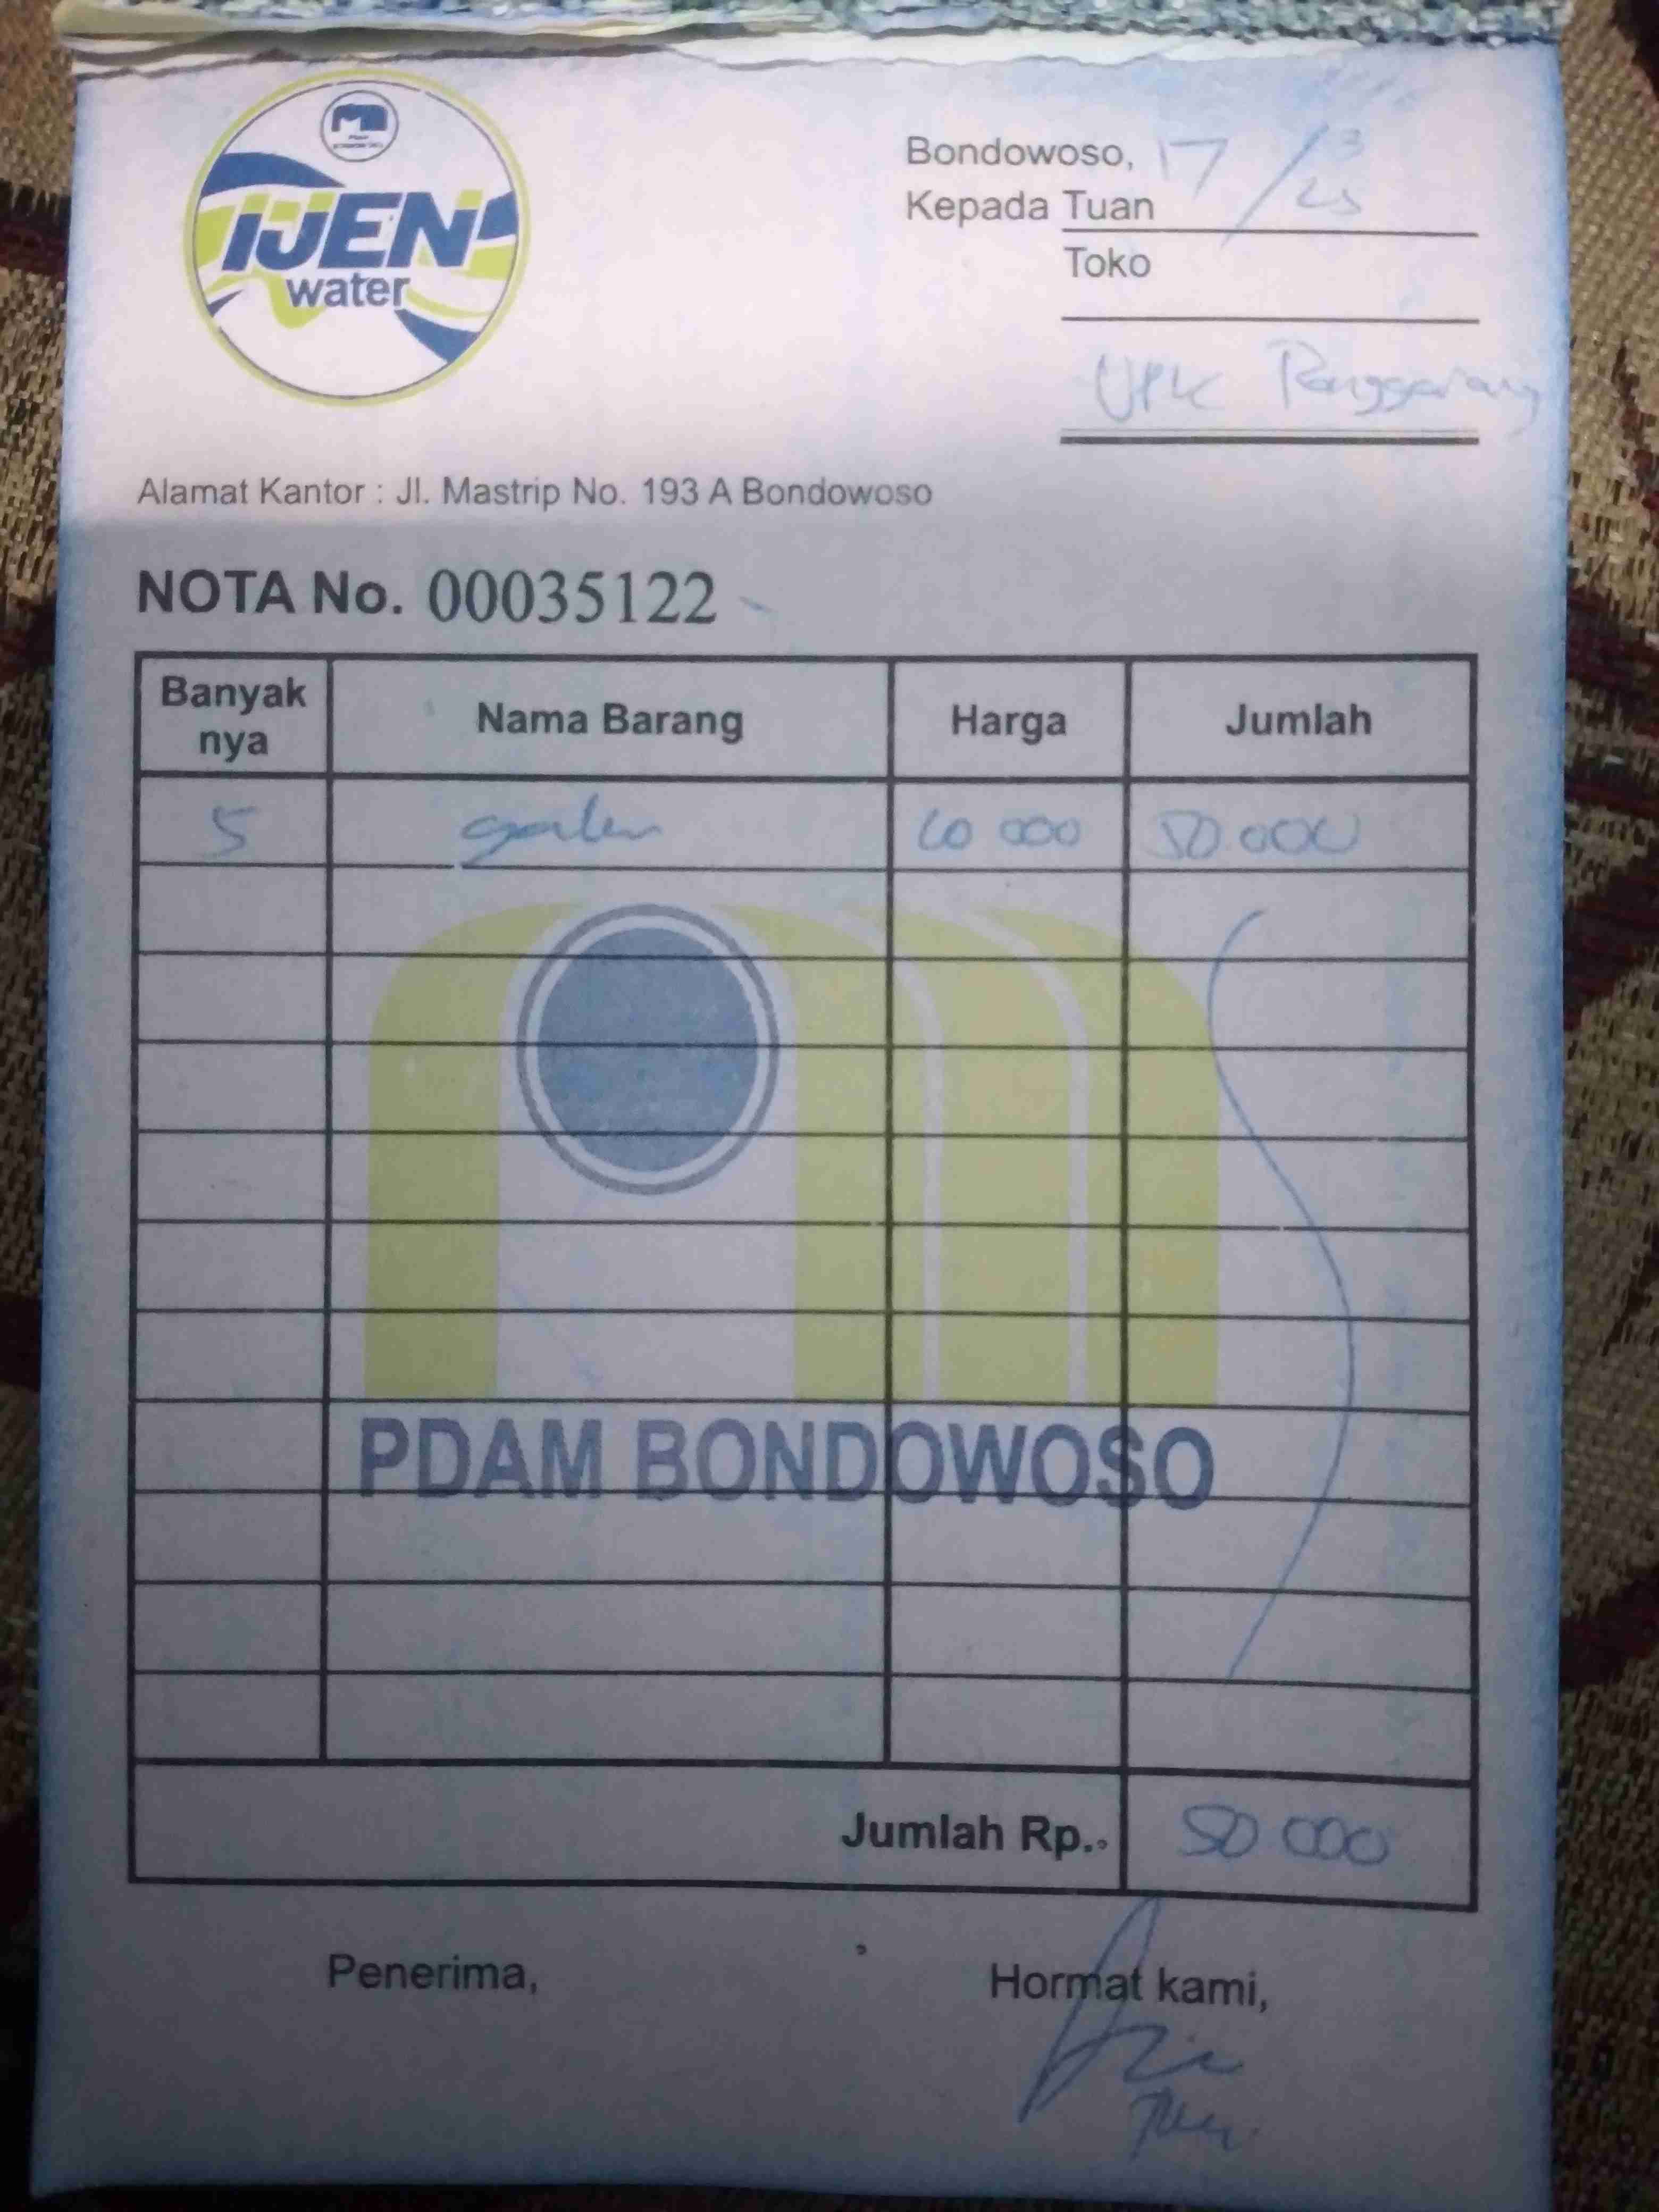 IJEN
water
Bondowoso, 17/3 25
Kepada Tuan
Toko
UPK
Alamat Kantor : Jl. Mastrip No. 193 A Bondowoso
NOTA No. 00035122
Banyak nya Nama Barang Harga Jumlah
5 galon 10 000 50.000
PDAM BONDOWOSO
Jumlah Rp.. 50 000
Penerima, Hormat kami,